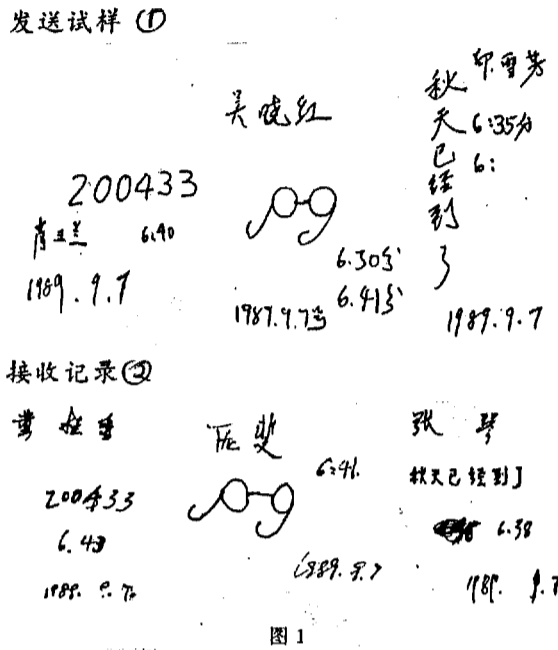 发送试样 ①
吴晓红
200433
肖
6.40
1989.9.7
6.30分
6.41分
1989.9.7号
秋天已经到了
6:35分
6:
1989.9.7
接收记录②
200433
6.43
1989.9.7
6:41.
1989.9.7
张琴
秋天已经到了
6.38
1989.9.7
图 1